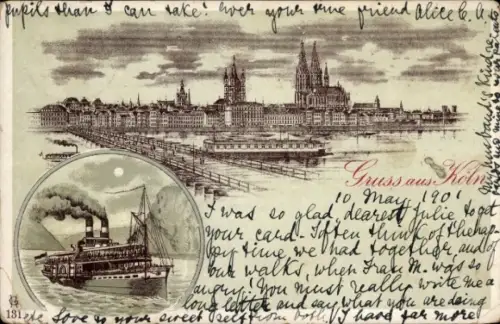 pupils than I can take! Ever your true friend Alice C. A.
Gruss aus Köln
10. May, 1901
I was so glad, dearest Julie to get
your card. I often think of the hap-
py time we had together, and of
our walks, when Frau M. was so
angry! You must really write me a
long letter and say what you are doing
Love to your sweet self from both. I have far more
131